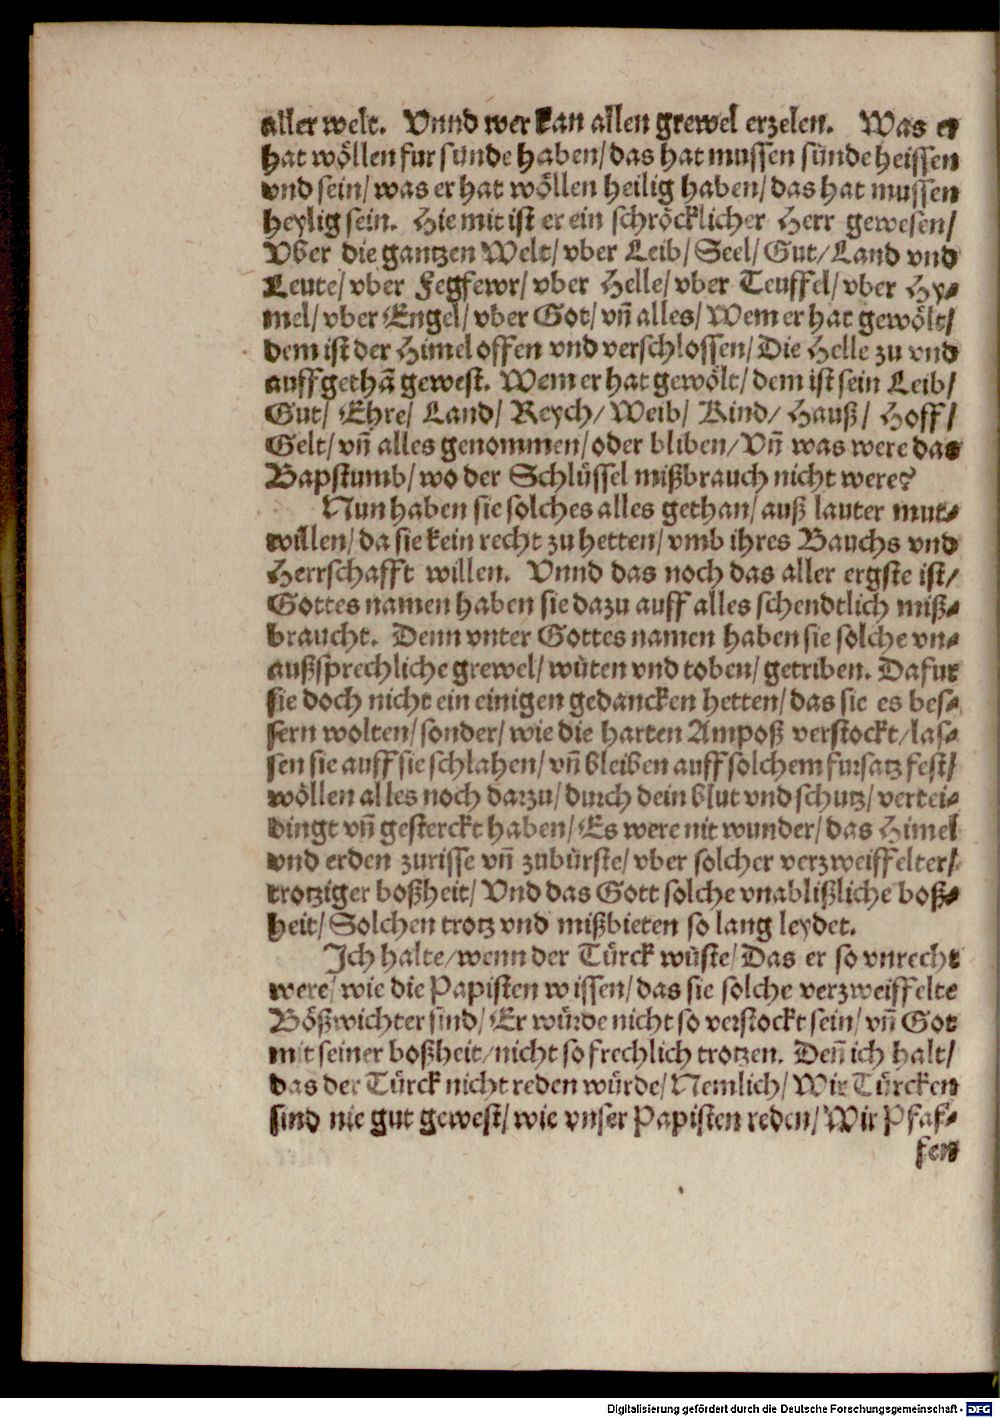 aller welt. Vnnd wer kan allen grewel erzelen. Was er
hat wöllen fur sünde haben/ das hat mussen sünde heissen
vnd sein/ was er hat wöllen heilig haben/ das hat mussen
heylig sein. Hie mit ist er ein schröcklicher Herr gewesen/
Vber die gantzen Welt/ vber Leib/ Seel/ Gut/ Land vnd
Leute/ vber Fegfewr/ vber Helle/ vber Teuffel/ vber Hy-
mel/ vber Engel/ vber Got/ vñ alles/ Wem er hat gewölt/
dem ist der Himel offen vnd verschlossen/ Die Helle zu vnd
auffgethã gewest. Wem er hat gewölt/ dem ist sein Leib/
Gut/ Ehre/ Land/ Reych/ Weib/ Kind/ Hauß/ Hoff/
Gelt/ vñ alles genommen/ oder bliben/ Vñ was were das
Bapstumb/ wo der Schlüssel mißbrauch nicht were?
Nun haben sie solches alles gethan/ auß lauter mut-
willen/ da sie kein recht zu hetten/ vmb ihres Bauchs vnd
Herrschafft willen. Vnnd das noch das aller ergste ist/
Gottes namen haben sie dazu auff alles schendtlich miß-
braucht. Denn vnter Gottes namen haben sie solche vn-
außsprechliche grewel/ wüten vnd toben/ getriben. Dafur
sie doch nicht ein einigen gedancken hetten/ das sie es bes-
sern wolten/ sonder/ wie die harten Ampoß verstockt/ las-
sen sie auff sie schlahen/ vñ bleiben auff solchem fursatz fest/
wöllen alles noch darzu/ durch dein blut vnd schutz/ vertei-
dingt vñ gesterckt haben/ Es were nit wunder/ das Himel
vnd erden zurisse vñ zubürste/ vber solcher verzweiffelter/
trotziger boßheit/ Vnd das Gott solche vnablißliche boß-
heit/ Solchen trotz vnd mißbieten so lang leydet.
Ich halte/ wenn der Türck wüste/ Das er so vnrecht
were/ wie die Papisten wissen/ das sie solche verzweiffelte
Bößwichter sind/ Er würde nicht so verstockt sein/ vñ Got
mit seiner boßheit/ nicht so frechlich trotzen. Deñ ich halt/
das der Türck nicht reden würde/ Nemlich/ Wir Türcken
sind nie gut gewest/ wie vnser Papisten reden/ Wir Pfaf-
fen
Digitalisierung gefördert durch die Deutsche Forschungsgemeinschaft - DFG